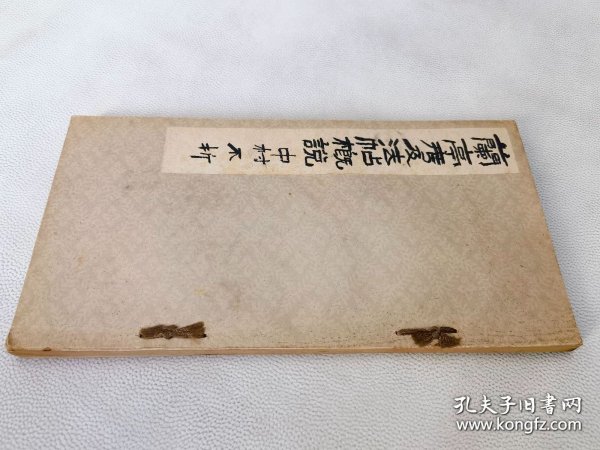 蘭亭考及法帖概説 中村不折
孔夫子旧书网
www.kongfz.com